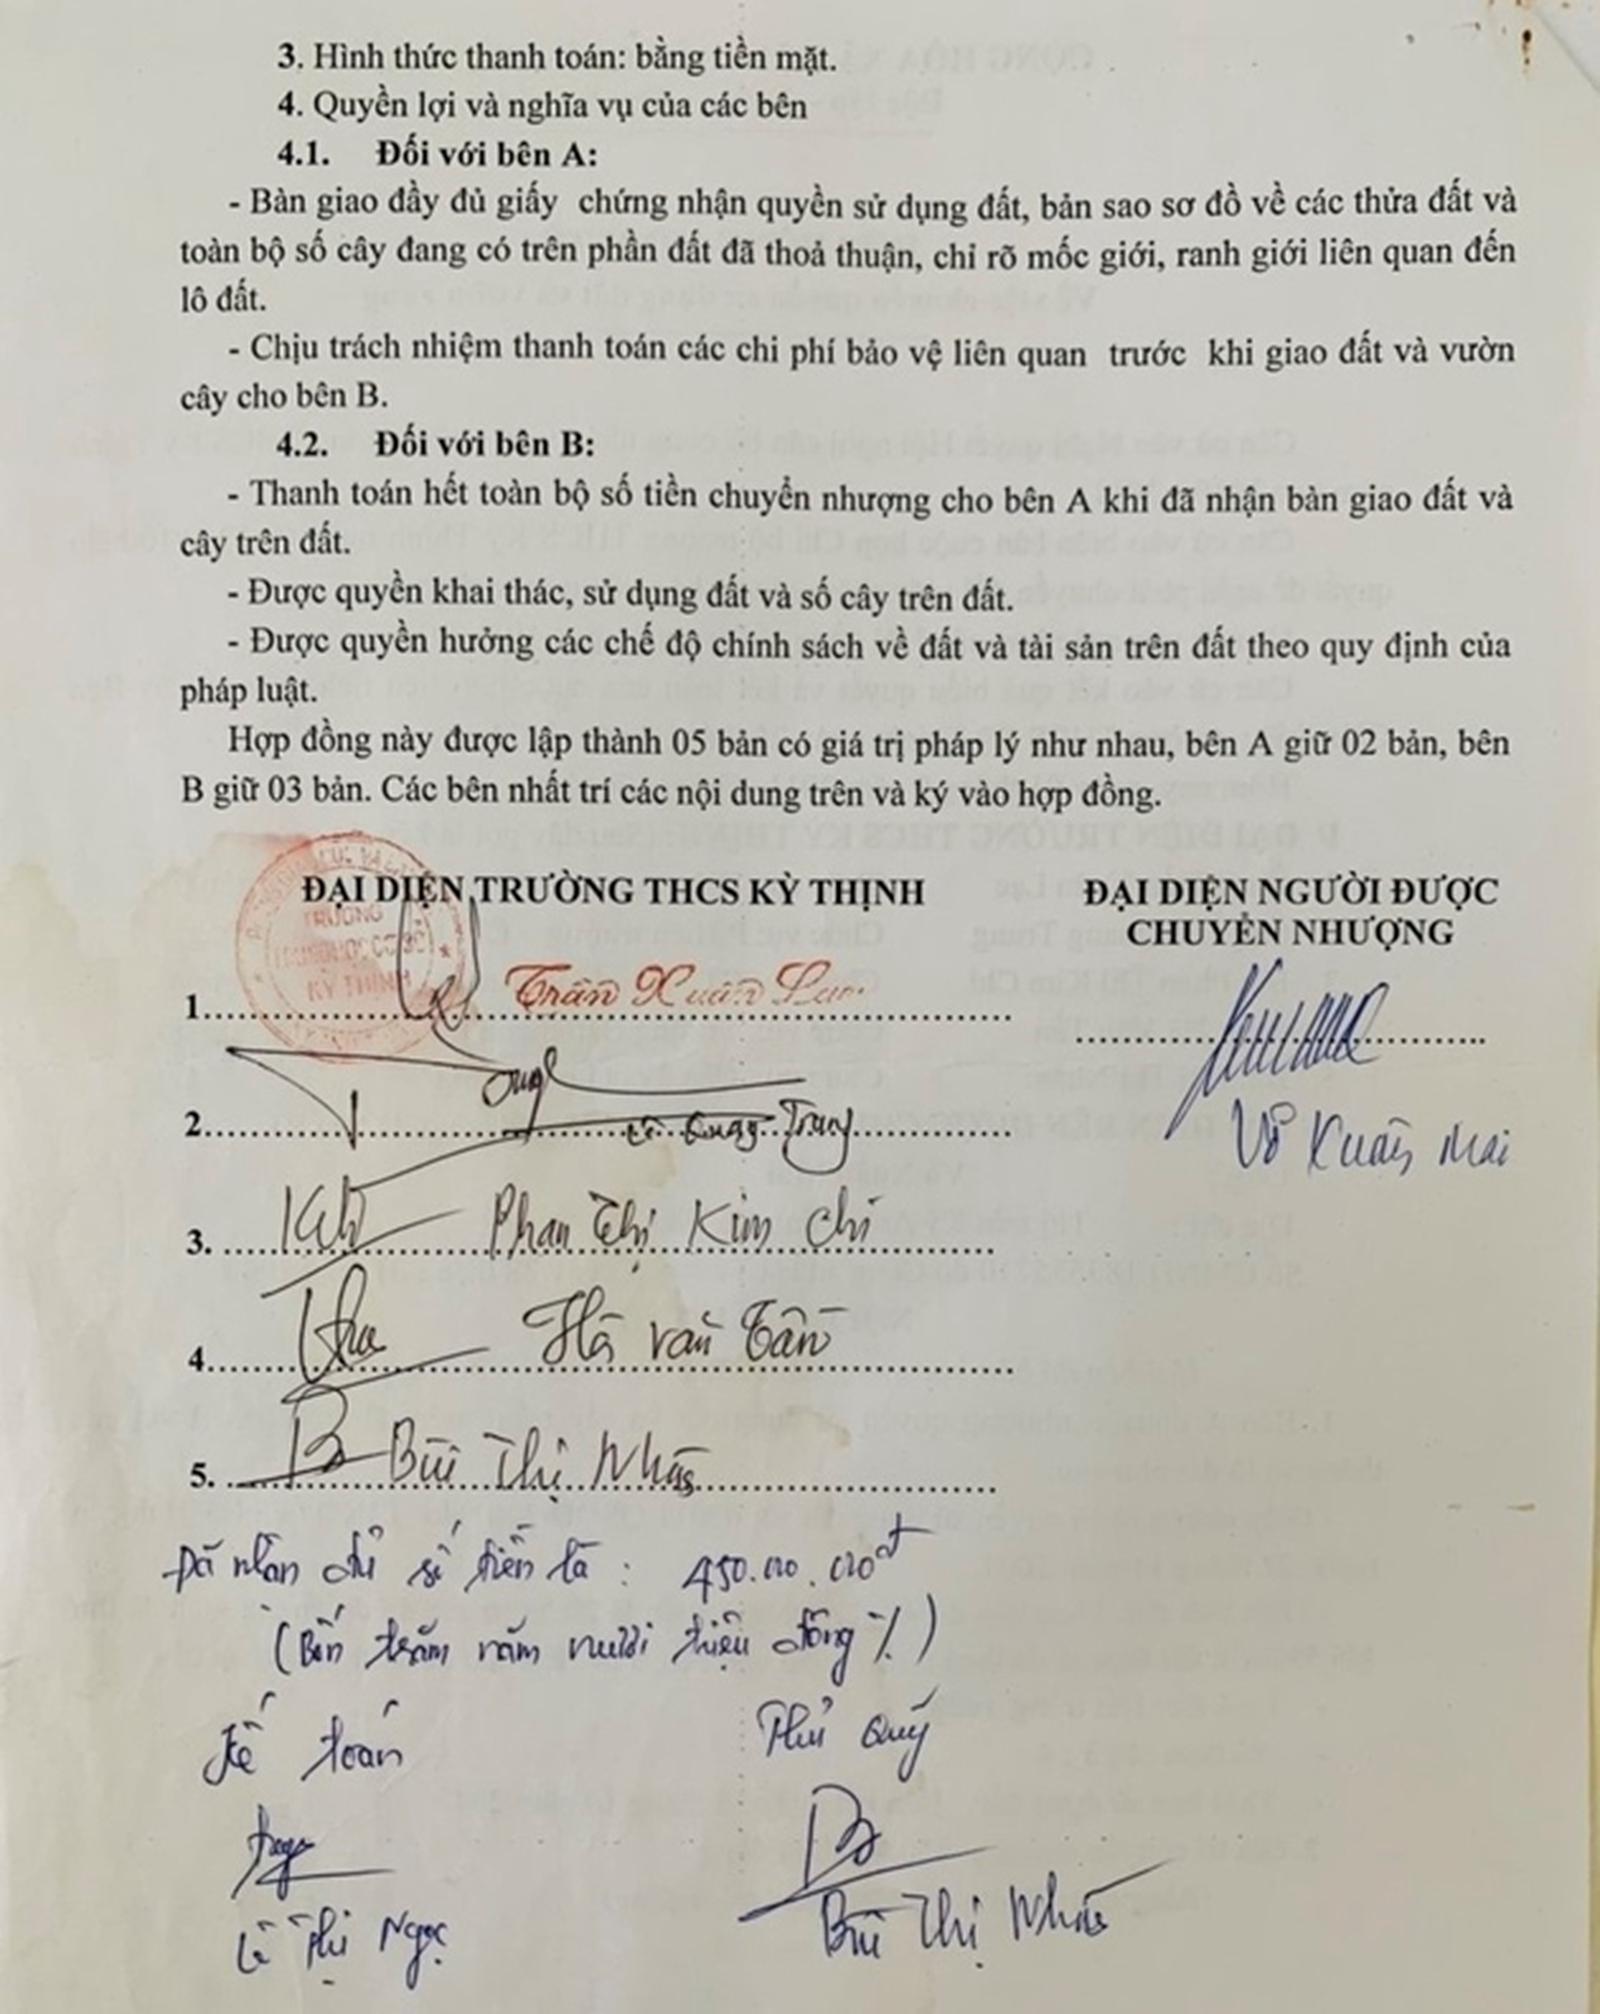 3. Hình thức thanh toán: bằng tiền mặt.
4. Quyền lợi và nghĩa vụ của các bên
4.1. Đối với bên A:
- Bàn giao đầy đủ giấy chứng nhận quyền sử dụng đất, bản sao sơ đồ về các thửa đất và
toàn bộ số cây đang có trên phần đất đã thoả thuận, chỉ rõ mốc giới, ranh giới liên quan đến
lô đất.
- Chịu trách nhiệm thanh toán các chi phí bảo vệ liên quan trước khi giao đất và vườn
cây cho bên B.
4.2. Đối với bên B:
- Thanh toán hết toàn bộ số tiền chuyển nhượng cho bên A khi đã nhận bàn giao đất và
cây trên đất.
- Được quyền khai thác, sử dụng đất và số cây trên đất.
- Được quyền hưởng các chế độ chính sách về đất và tài sản trên đất theo quy định của
pháp luật.
Hợp đồng này được lập thành 05 bản có giá trị pháp lý như nhau, bên A giữ 02 bản, bên
B giữ 03 bản. Các bên nhất trí các nội dung trên và ký vào hợp đồng.
ĐẠI DIỆN TRƯỜNG THCS KỲ THỊNH
ĐẠI DIỆN NGƯỜI ĐƯỢC
CHUYỂN NHƯỢNG
TRƯỜNG
TRUNG HỌC CƠ SỞ
KỲ THỊNH
1. Trần Xuân Lạc
2. Lê Quang Trung
Võ Xuân Mai
3. Phan Thị Kim Chi
4. Hà Văn Tân
5. Bùi Thị Nhân
Đã nhận đủ số tiền là: 450.000.000đ
(Bốn trăm năm mươi triệu đồng %)
Kế toán
Thủ Quỹ
Lê Thị Ngọc
Bùi Thị Nhân